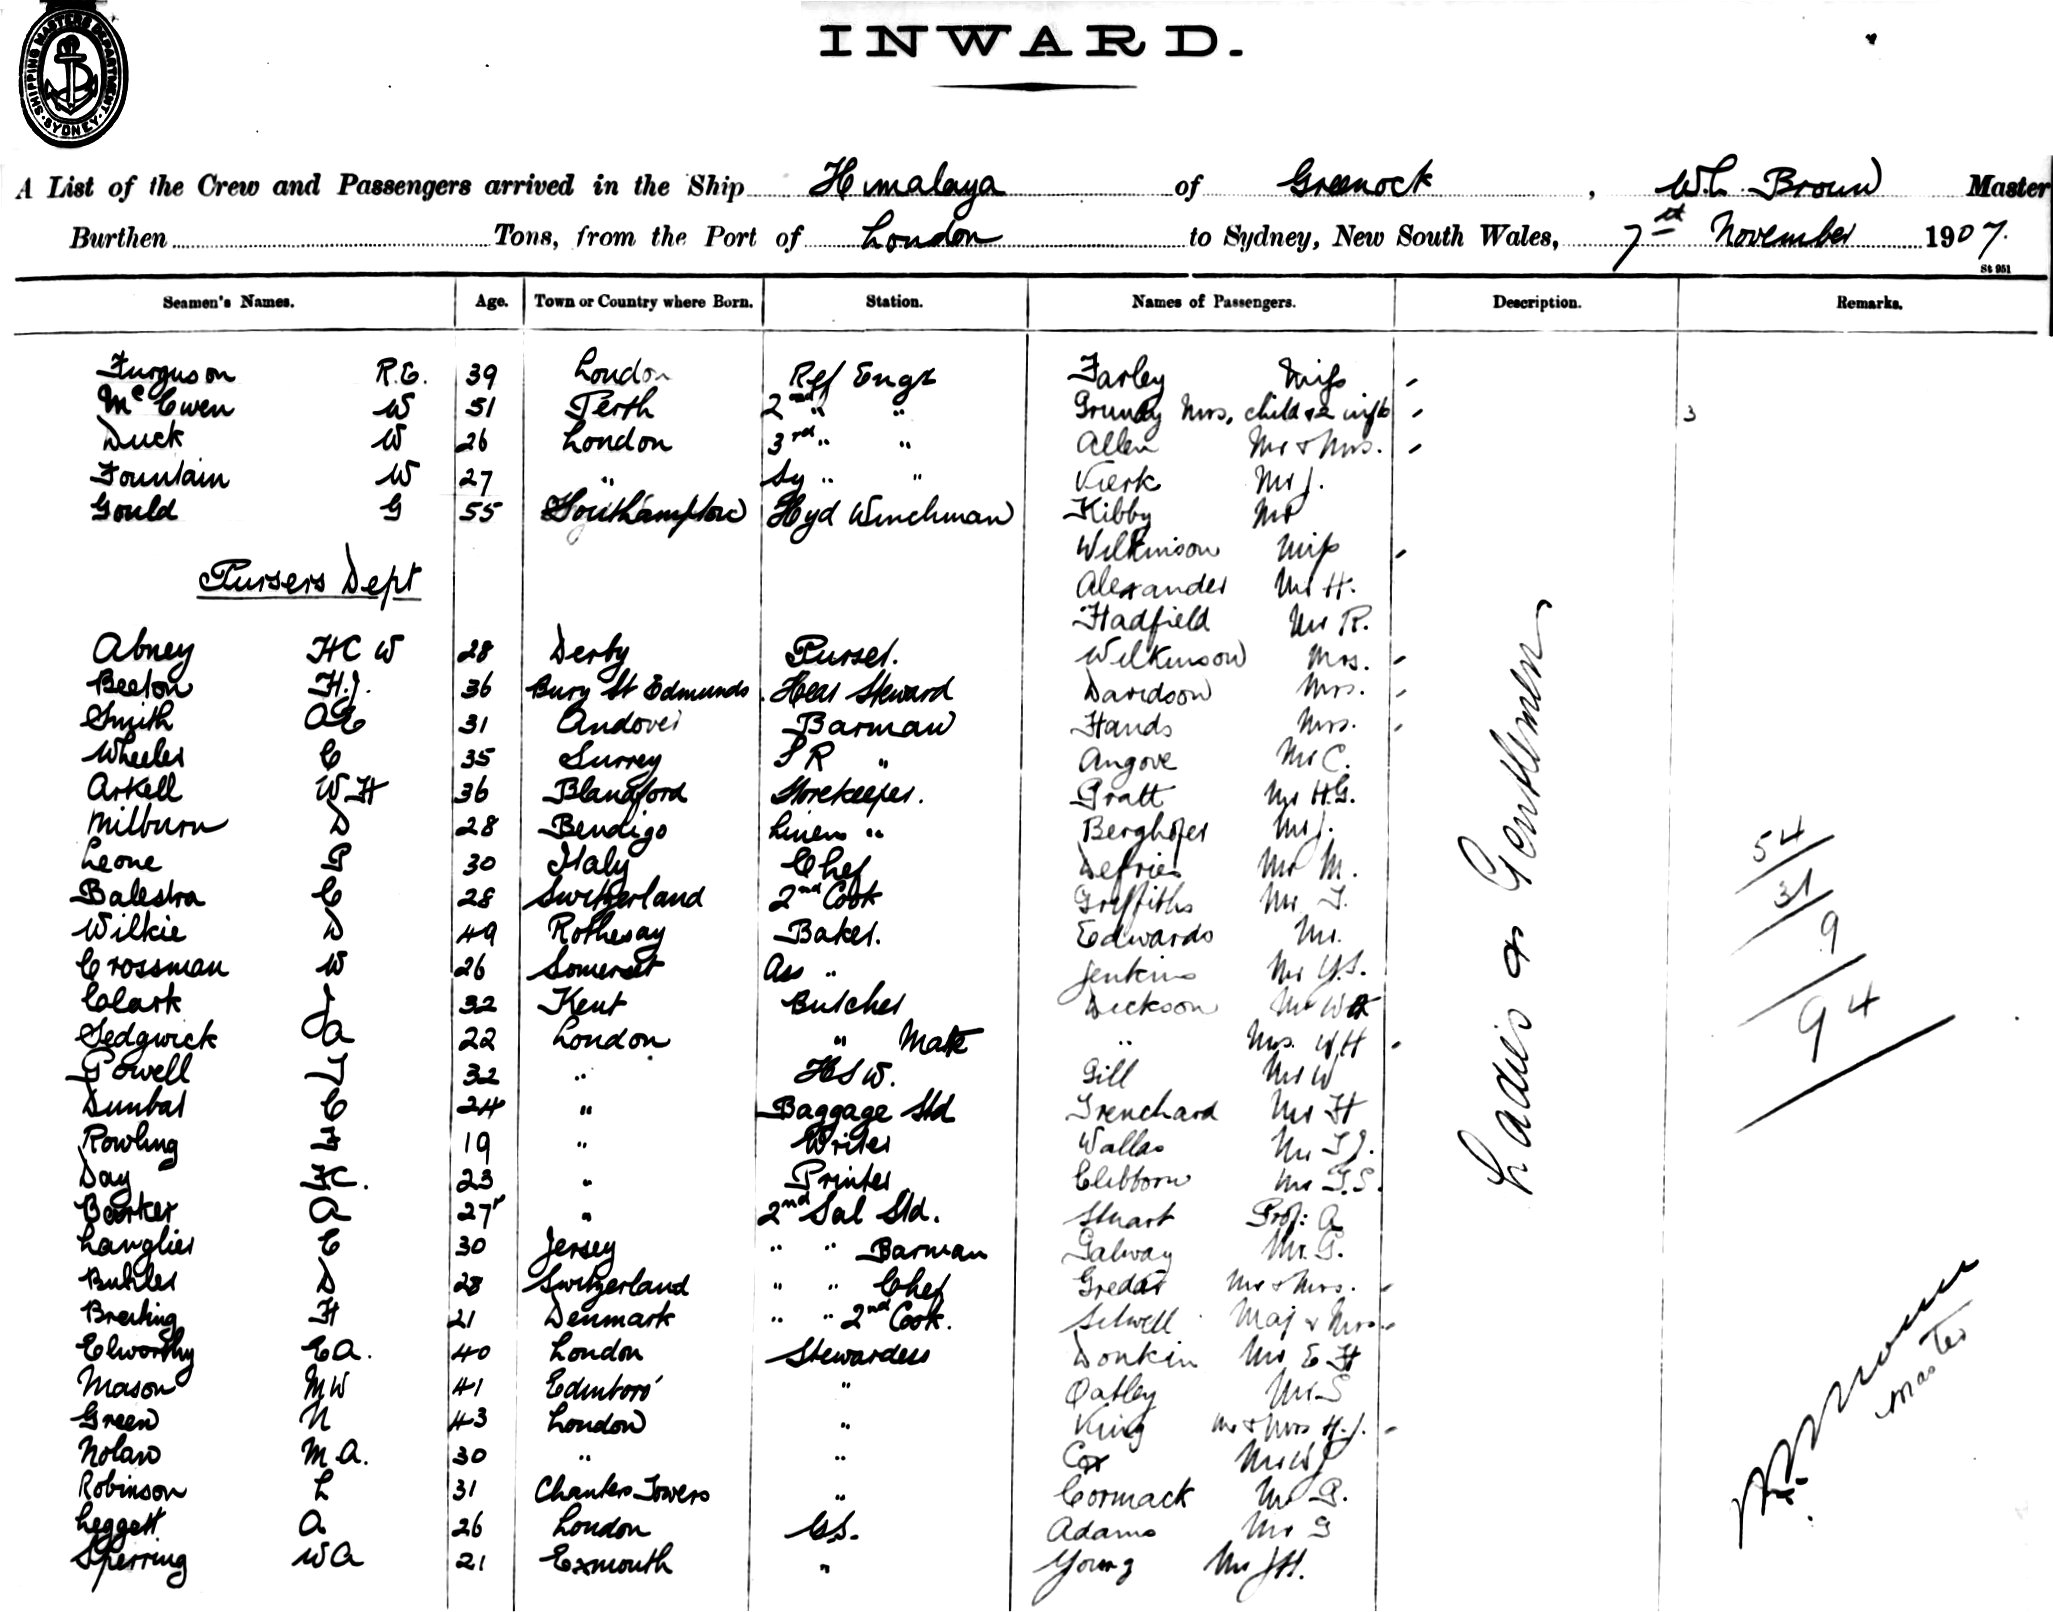 SHIPPING MASTERS DEPARTMENT. SYDNEY.
INWARD.
A List of the Crew and Passengers arrived in the Ship Himalaya of Greenock, W.L. Brown Master
Burthen Tons, from the Port of London to Sydney, New South Wales, 7th November 1907.
St 951
Seamen's Names. Age. Town or Country where Born. Station. Names of Passengers. Description. Remarks.
Ferguson R.E. 39 London Ref Engr Farley Miss
McEwen W 51 Perth 2nd " " Grundy Mrs, child & 2 infts 3
Duck W 26 London 3rd " " Allen Mr & Mrs.
Fountain W 27 " Sy " " Vierk Mr J.
Gould G 55 Southampton Hyd Winchman Kibby Mr
Wilkinson Miss
Pursers Dept Alexander Mr H.
Hadfield Mr R.
Abney HC W 28 Derby Purser. Wilkinson Mrs.
Beeton H.J. 36 Bury St Edmunds Head Steward Davidson Mrs.
Smith AE 31 Andover Barman Hands Mrs.
Wheeler C 35 Surrey S R " Angove Mr C.
Arkell W H 36 Blandford Storekeeper. Pratt Mr H.G.
Milburn D 28 Bendigo Linen " Berghofer Mr J.
Leone P 30 Italy Chef Defries Mr M.
Balestra C 28 Switzerland 2nd Cook Griffiths Mr T.
Wilkie D 49 Rothesay Baker. Edwards Mr.
Crossman W 26 Somerset Ass " Jenkins Mr Y.S.
Clark J 32 Kent Butcher Dickson Mr WH
Sedgwick A 22 London " Mate " Mrs. WH
Powell J 32 " HSW. Gill Mr W
Dunbar C 24 " Baggage Std Trenchard Mr H
Rowling F 19 " Writer Wallas Mr T.J.
Day F.C. 23 " Printer Clibborn Mr T.S.
Barker A 27 " 2nd Sal Std. Stuart Prof: A
Langlier C 30 Jersey " " Barman Galway Mr. G.
Buhler D 28 Switzerland " " Chef Gredar Mr & Mrs.
Breiting H 21 Denmark " " 2nd Cook. Selwell Maj & Mrs.
Elworthy EA. 40 London Stewardess Donkin Mr E H
Mason MW 41 Edinboro' " Oatley Mr S
Green N 43 London " King Mr & Mrs H.J.
Nolan M.A. 30 " " Cox Mr W J
Robinson L 31 Charters Towers " Cormack Mr P.
Leggett A 26 London G.S. Adams Mr G
Sperring WA 21 Exmouth " Young Mr JH.
Ladies or Gentlemen
54
31
9
94
Master